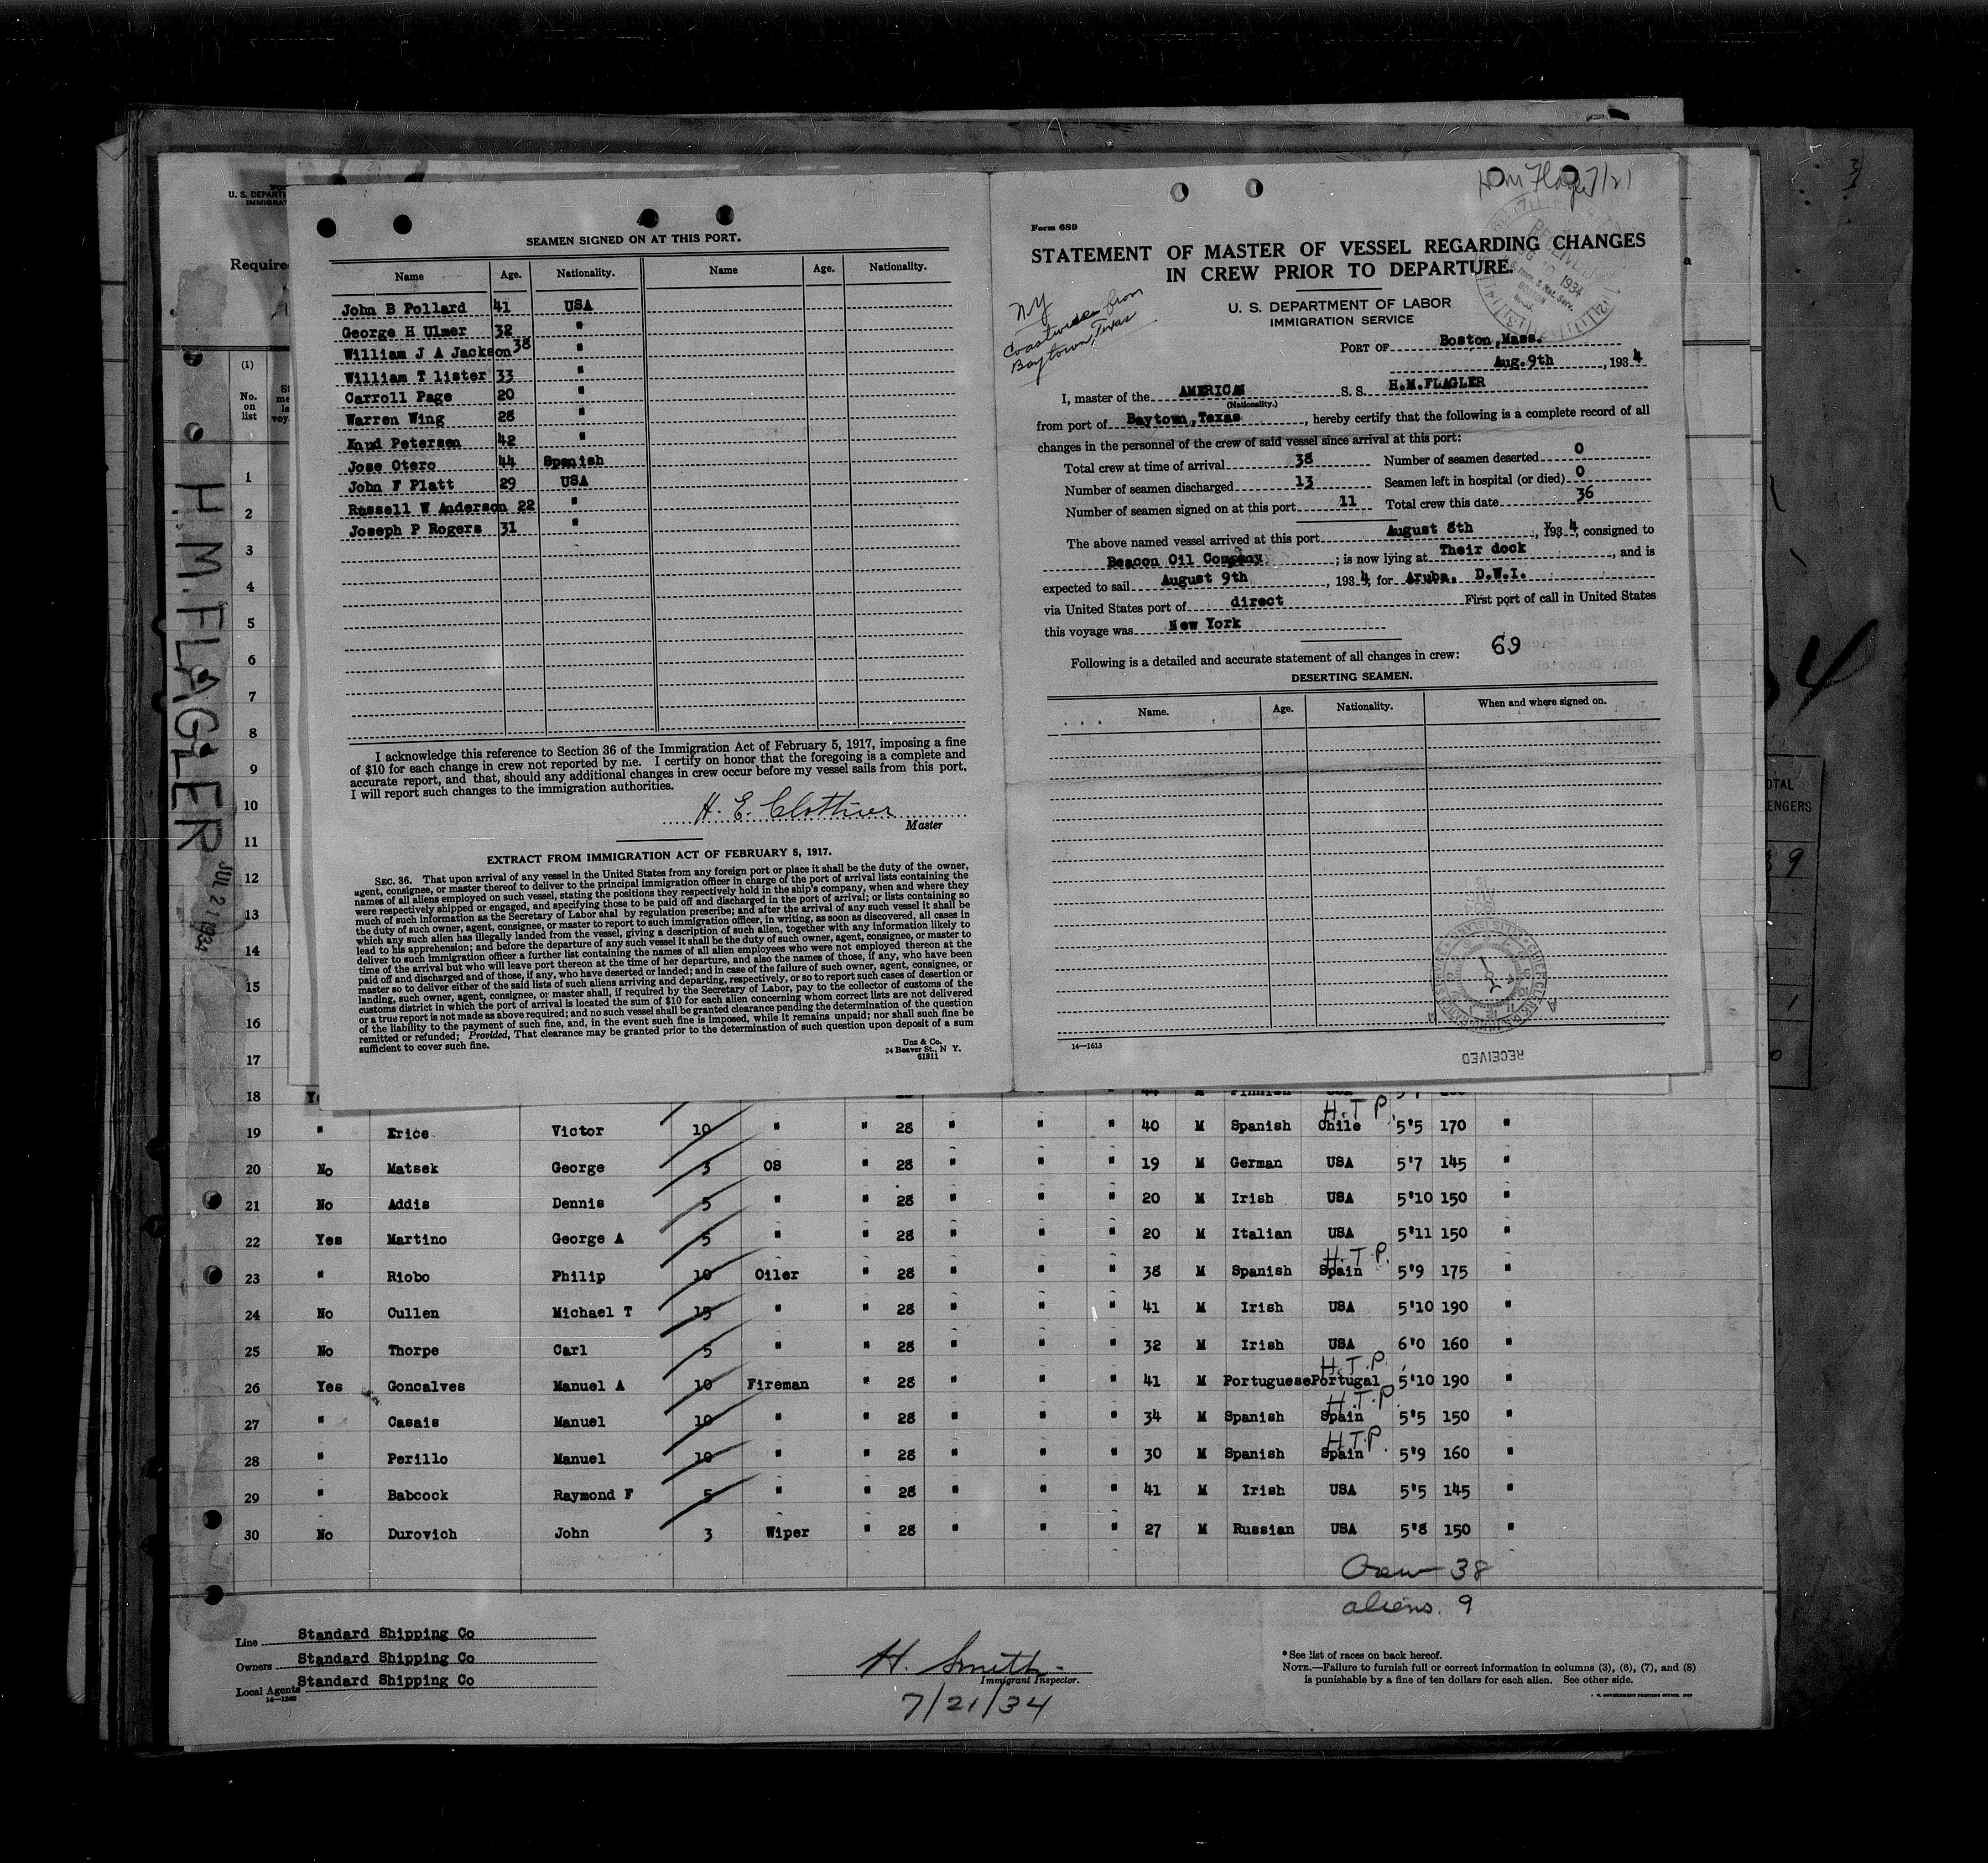 U. S. DEPARTM
IMMIGRAT
Require
(1)
No. on list
H. M. FLAGLER
JUL 21 1934
SEAMEN SIGNED ON AT THIS PORT.
Name Age. Nationality. Name Age. Nationality.
John B Pollard 41 USA
George H Ulmer 32 "
William J A Jackson 38 "
William T lister 33 "
Carroll Page 20 "
Warren Wing 28 "
Knud Petersen 42 "
Jose Otero 44 Spanish
John F Platt 29 USA
Russell W Anderson 22 "
Joseph P Rogers 31 "
I acknowledge this reference to Section 36 of the Immigration Act of February 5, 1917, imposing a fine
of $10 for each change in crew not reported by me. I certify on honor that the foregoing is a complete and
accurate report, and that, should any additional changes in crew occur before my vessel sails from this port,
I will report such changes to the immigration authorities.
H. E. Clothier
Master
EXTRACT FROM IMMIGRATION ACT OF FEBRUARY 5, 1917.
SEC. 36. That upon arrival of any vessel in the United States from any foreign port or place it shall be the duty of the owner,
agent, consignee, or master thereof to deliver to the principal immigration officer in charge of the port of arrival lists containing the
names of all aliens employed on such vessel, stating the positions they respectively hold in the ship's company, when and where they
were respectively shipped or engaged, and specifying those to be paid off and discharged in the port of arrival; or lists containing so
much of such information as the Secretary of Labor shal by regulation prescribe; and after the arrival of any such vessel it shall be
the duty of such owner, agent, consignee, or master to report to such immigration officer, in writing, as soon as discovered, all cases in
which any such alien has illegally landed from the vessel, giving a description of such alien, together with any information likely to
lead to his apprehension; and before the departure of any such vessel it shall be the duty of such owner, agent, consignee, or master to
deliver to such immigration officer a further list containing the names of all alien employees who were not employed thereon at the
time of the arrival but who will leave port thereon at the time of her departure, and also the names of those, if any, who have been
paid off and discharged and of those, if any, who have deserted or landed; and in case of the failure of such owner, agent, consignee, or
master so to deliver either of the said lists of such aliens arriving and departing, respectively, or so to report such cases of desertion or
landing, such owner, agent, consignee, or master shall, if required by the Secretary of Labor, pay to the collector of customs of the
customs district in which the port of arrival is located the sum of $10 for each alien concerning whom correct lists are not delivered
or a true report is not made as above required; and no such vessel shall be granted clearance pending the determination of the question
of the liability to the payment of such fine, and, in the event such fine is imposed, while it remains unpaid; nor shall such fine be
remitted or refunded; Provided, That clearance may be granted prior to the determination of such question upon deposit of a sum
sufficient to cover such fine.
Unz & Co.
24 Beaver St., N Y.
61311
H M Flagler 7/21
Form 689
STATEMENT OF MASTER OF VESSEL REGARDING CHANGES
IN CREW PRIOR TO DEPARTURE.
RECEIVED
1934
Imm. & Nat. Serv.
BOSTON
U. S. DEPARTMENT OF LABOR
IMMIGRATION SERVICE
NY
Coastwise from
Baytown, Texas
PORT OF Boston, Mass.
Aug. 9th , 1934
I, master of the AMERICAN S. S. H.M.FLAGLER
(Nationality.)
from port of Baytown, Texas , hereby certify that the following is a complete record of all
changes in the personnel of the crew of said vessel since arrival at this port:
Total crew at time of arrival 38 Number of seamen deserted 0
Number of seamen discharged 13 Seamen left in hospital (or died) 0
Number of seamen signed on at this port 11 Total crew this date 36
The above named vessel arrived at this port August 8th , 1934, consigned to
Beacon Oil Company ; is now lying at Their dock , and is
expected to sail August 9th , 1934, for Aruba, D.W.I.
via United States port of direct First port of call in United States
this voyage was New York
Following is a detailed and accurate statement of all changes in crew: 69
DESERTING SEAMEN.
Name. Age. Nationality. When and where signed on.
14—1613
RECEIVED
OTAL
ENGERS
1
2
3
4
5
6
7
8
9
10
11
12
13
14
15
16
17
18
19 " Erice Victor 10 " " 28 " " " 40 M Spanish Chile H.T.P. 5'5 170 "
20 No Matsek George 3 OS " 28 " " " 19 M German USA 5'7 145 "
21 No Addis Dennis 5 " " 28 " " " 20 M Irish USA 5'10 150 "
22 Yes Martino George A 5 " " 28 " " " 20 M Italian USA 5'11 150 "
23 " Riobo Philip 10 Oiler " 28 " " " 38 M Spanish Spain H.T.P. 5'9 175 "
24 No Cullen Michael T 15 " " 28 " " " 41 M Irish USA 5'10 190 "
25 No Thorpe Carl 5 " " 28 " " " 32 M Irish USA 6'0 160 "
26 Yes Goncalves Manuel A 10 Fireman " 28 " " " 41 M Portuguese Portugal H.T.P. 5'10 190 "
27 " Casais Manuel 10 " " 28 " " " 34 M Spanish Spain H.T.P. 5'5 150 "
28 " Perillo Manuel 10 " " 28 " " " 30 M Spanish Spain H.T.P. 5'9 160 "
29 " Babcock Raymond F 5 " " 28 " " " 41 M Irish USA 5'5 145 "
30 No Durovich John 3 Wiper " 28 " " " 27 M Russian USA 5'8 150 "
Crew 38
aliens. 9
Line Standard Shipping Co
Owners Standard Shipping Co
Local Agents Standard Shipping Co
14—1240
H. Smith
Immigrant Inspector.
7/21/34
*See list of races on back hereof.
NOTE.—Failure to furnish full or correct information in columns (3), (6), (7), and (8)
is punishable by a fine of ten dollars for each alien. See other side.